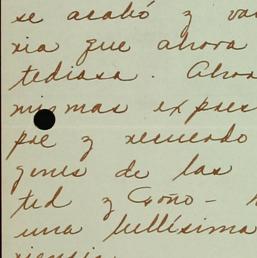 se acabó y va
xia que ahora
tediasa. Ahora
mismas expres
poe y recuerdo
gines de las
ted y Goño -
una bellísima